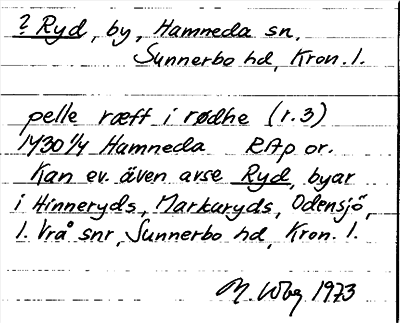 ? Ryd, by, Hamneda sn,
Sunnerbo hd, Kron. l.
pelle ræff i rødhe (r. 3)
1430 1/4 Hamneda RAp or.
Kan ev. även avse Ryd, byar
i Hinneryds, Markaryds, Odensjö,
l. Vrå snr, Sunnerbo hd, Kron. l.
1973